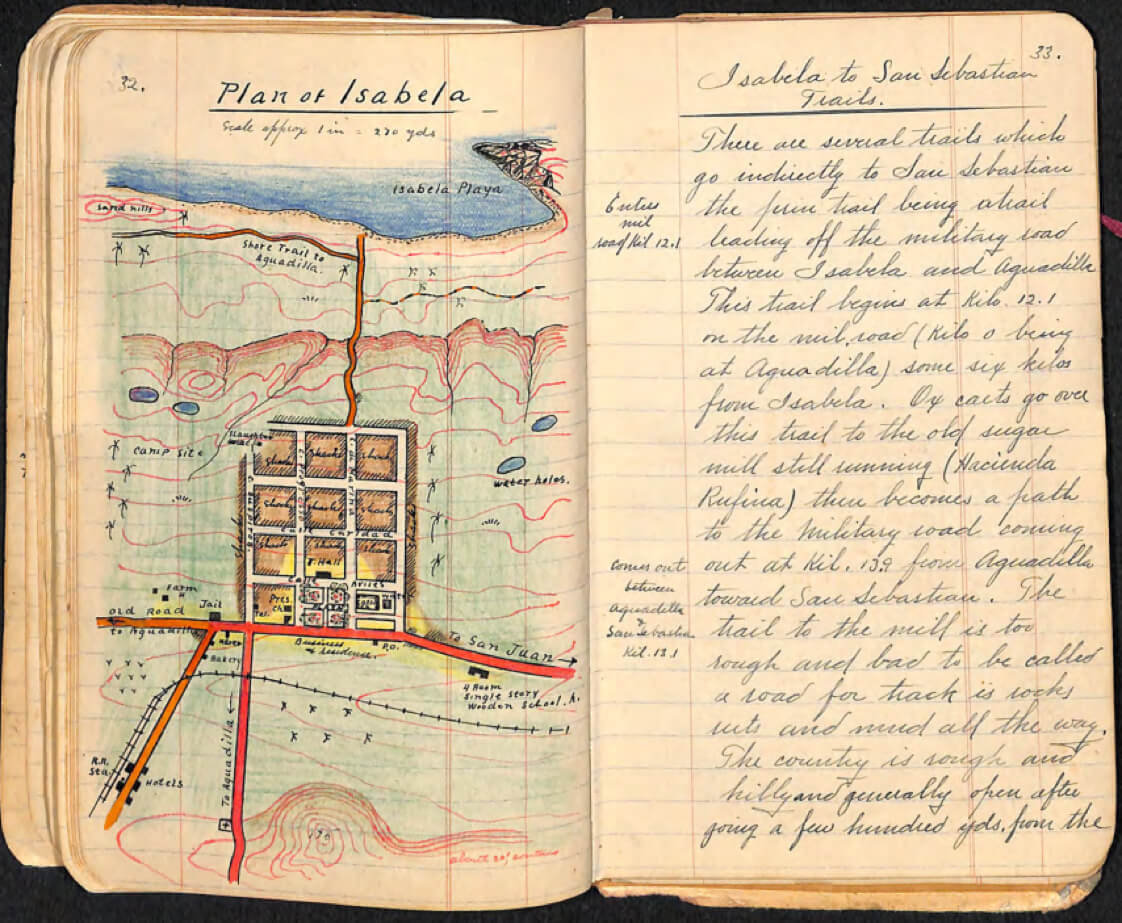 32.
Plan of Isabela
Scale approx 1 in = 220 yds
Isabela Playa
Sand hills
Shore Trail to
Aguadilla.
Camp Site
Slaughter
Shacks
Shacks
Shacks
water holes.
Shacks
Shacks
Shacks
Calle
Shacks
Shacks
T. Hall
Calle
Farm
Pres.
Ch.
Tel.
Jail
Old Road
to Aguadilla
Business
& Residence.
P.O.
To San Juan
Bakery
4 Room
Single Story
Wooden School.
To Aguadilla
R.R.
Sta.
Hotels
170
about 20' contours
33.
Isabela to San Sebastian
Trails.
There are several trails which
go indirectly to San Sebastian
Enters
mil
road Kil 12.1
the prin trail being a trail
leading off the military road
between Isabela and Aguadilla
This trail begins at Kilo. 12.1
on the mil. road (Kilo 0 being
at Aguadilla) some six kilos
from Isabela. Ox carts go over
this trail to the old sugar
mill still running (Hacienda
Rufina) then becomes a path
to the Military road coming
comes out
between
Aguadilla
&
San Sebastian
Kil. 13.1
out at Kil. 13.9 from Aguadilla
toward San Sebastian. The
trail to the mill is too
rough and bad to be called
a road for track is rocks
ruts and mud all the way.
The country is rough and
hilly and generally open after
going a few hundred yds. from the